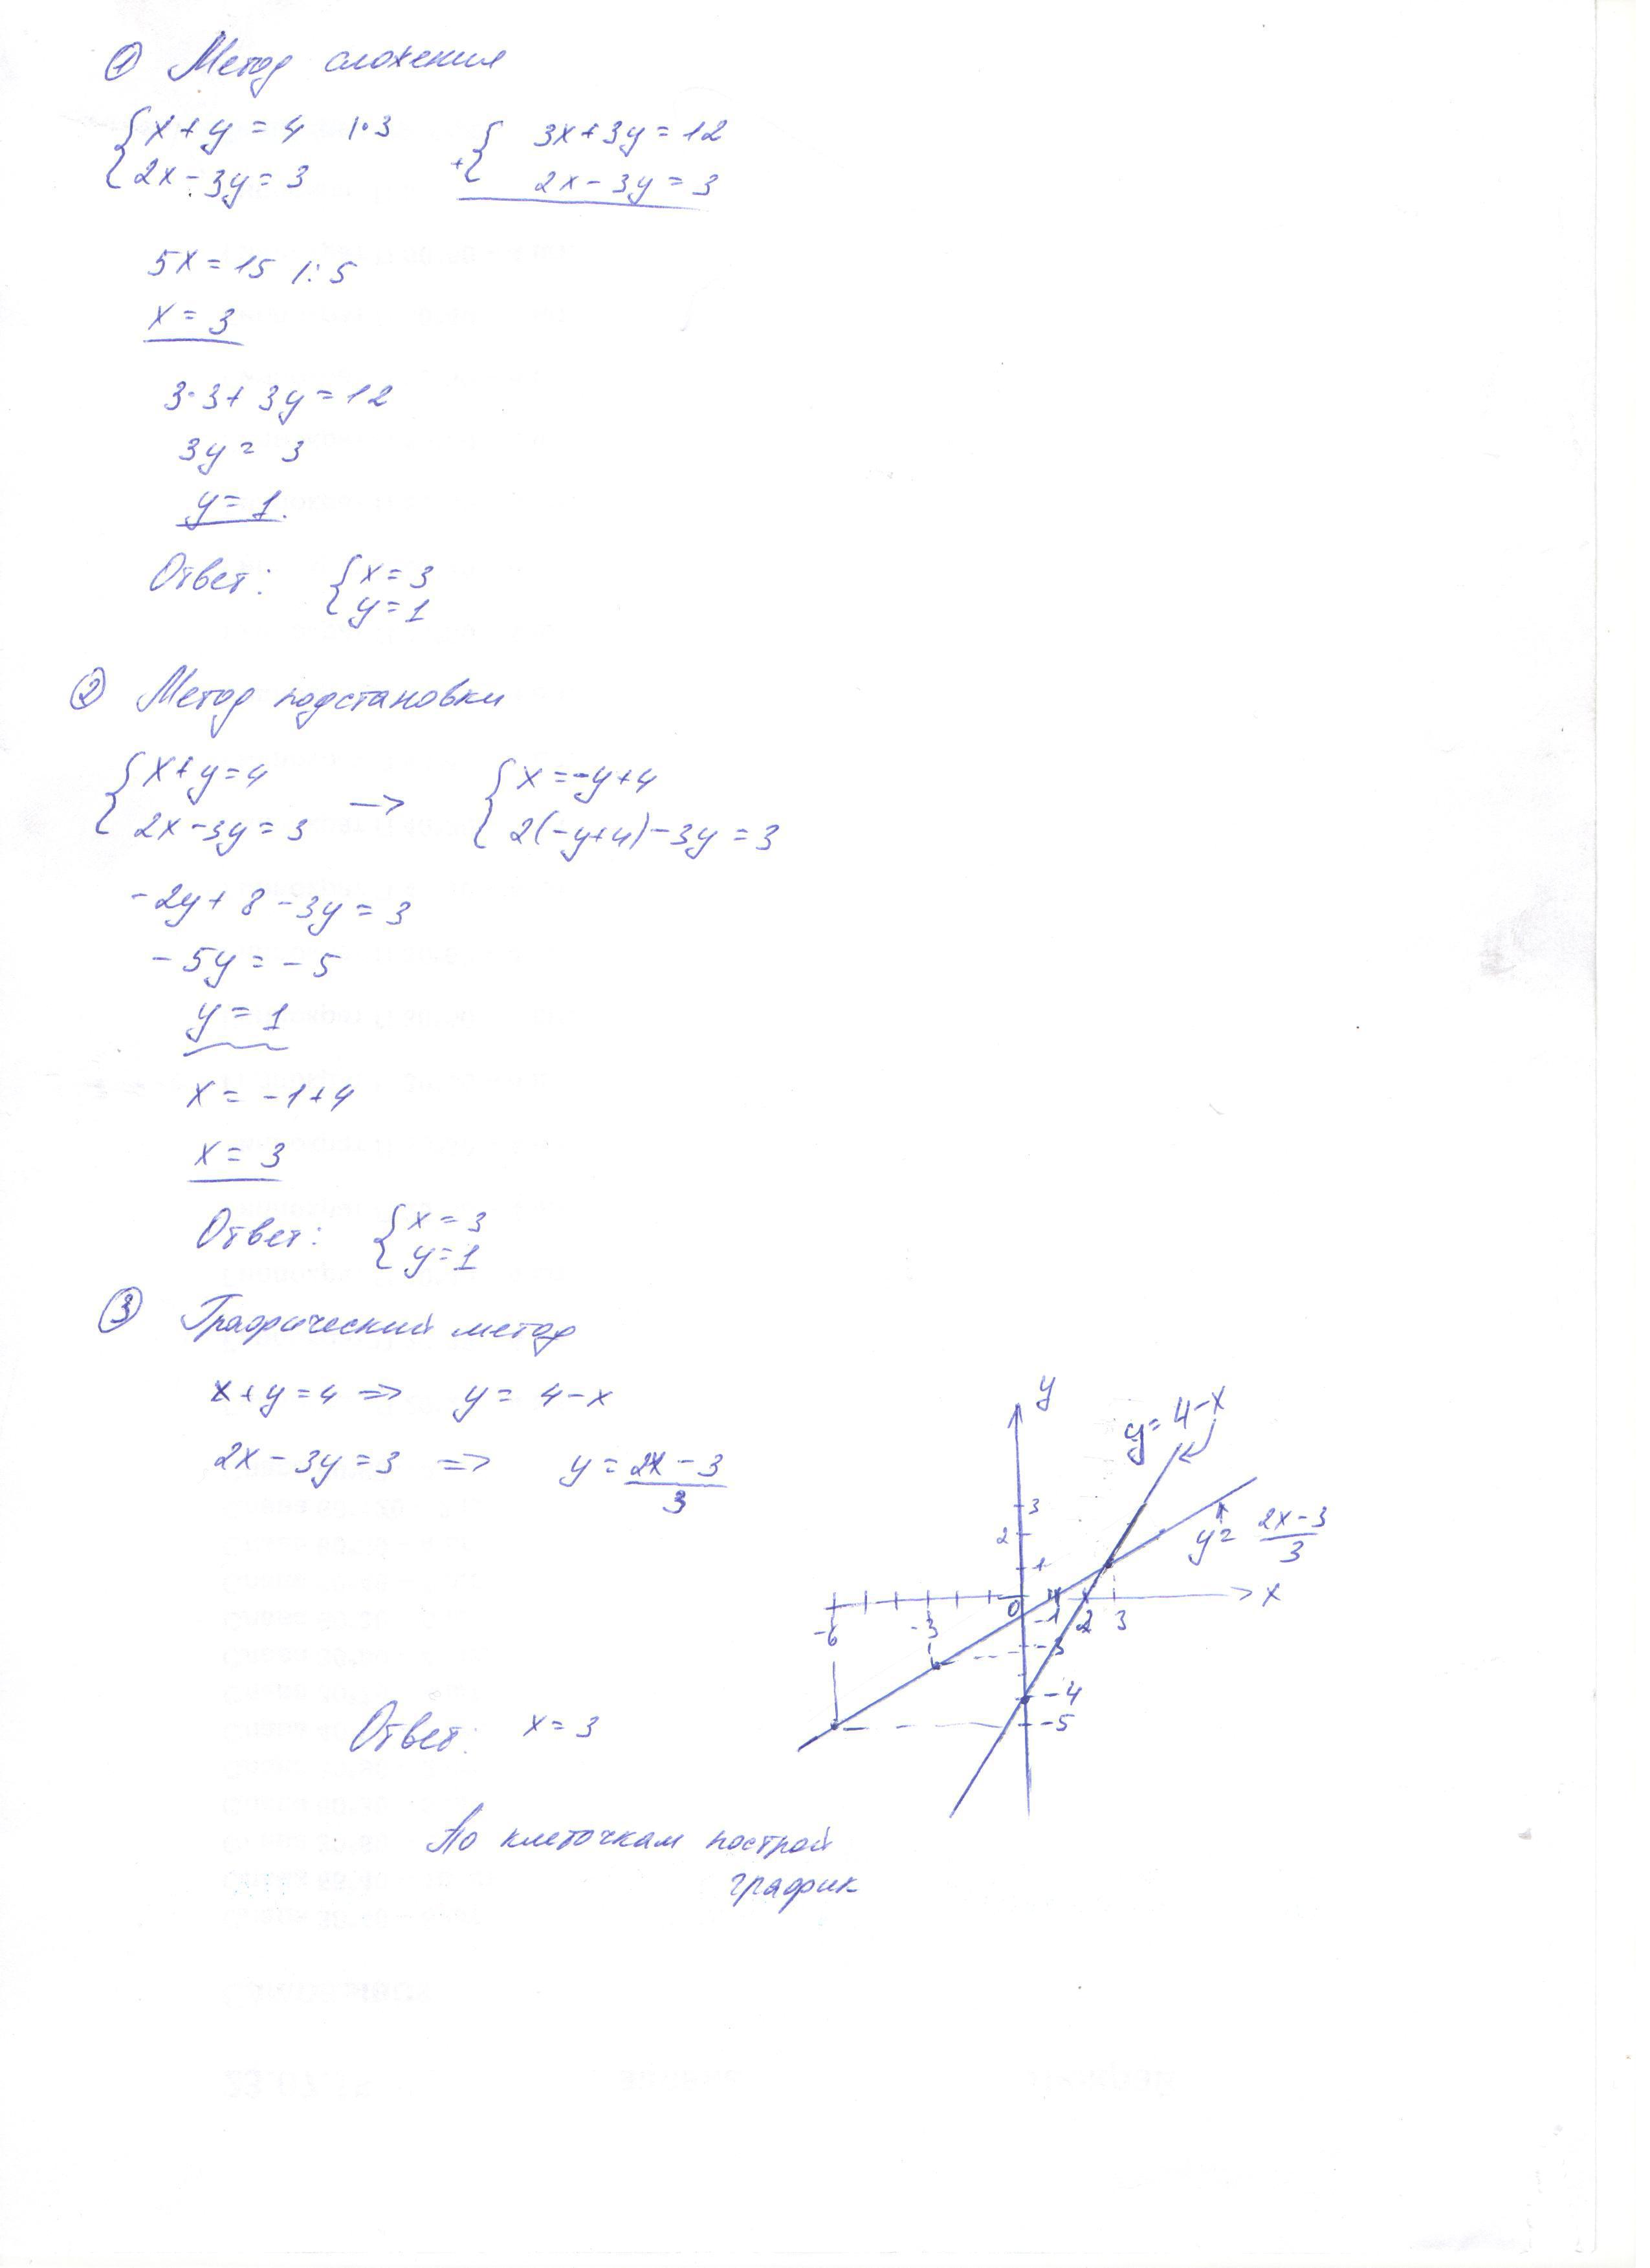 ① Метод сложения
{ x + y = 4 | · 3
2x - 3y = 3
+ { 3x + 3y = 12
2x - 3y = 3
5x = 15 |: 5
x = 3
3·3 + 3y = 12
3y = 3
y = 1.
Ответ: { x = 3
y = 1
② Метод подстановки
{ x + y = 4
2x - 3y = 3
→ { x = -y + 4
2(-y+4) - 3y = 3
-2y + 8 - 3y = 3
-5y = -5
y = 1
x = -1 + 4
x = 3
Ответ: { x = 3
y = 1
③ Графический метод
x + y = 4 => y = 4 - x
2x - 3y = 3 => y = (2x - 3)/3
y
y = 4-x
3
2
1
y = (2x-3)/3
-6
-3
0
-1
2
3
x
-3
-4
-5
Ответ: x = 3
По клеточкам построй
график